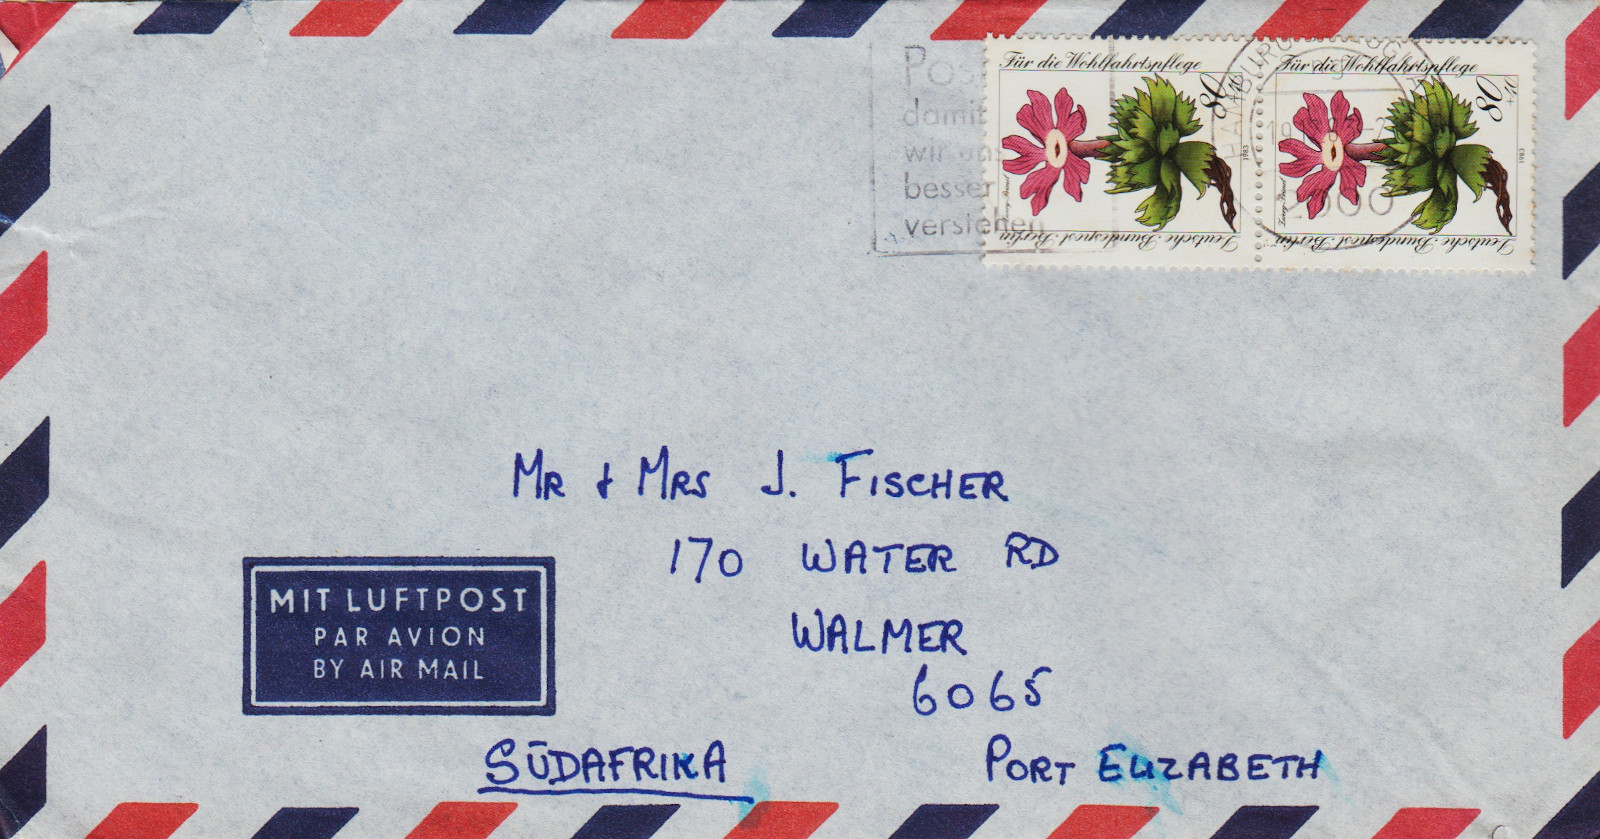 Post
damit
wir uns
besser
verstehen
Für die Wohlfahrtspflege
80
1983
Deutsche Bundespost Berlin
Für die Wohlfahrtspflege
80
1983
Deutsche Bundespost Berlin
HAMBURG
2000
MR & MRS J. FISCHER
170 WATER RD
WALMER
6065
SÜDAFRIKA PORT ELIZABETH
MIT LUFTPOST
PAR AVION
BY AIR MAIL